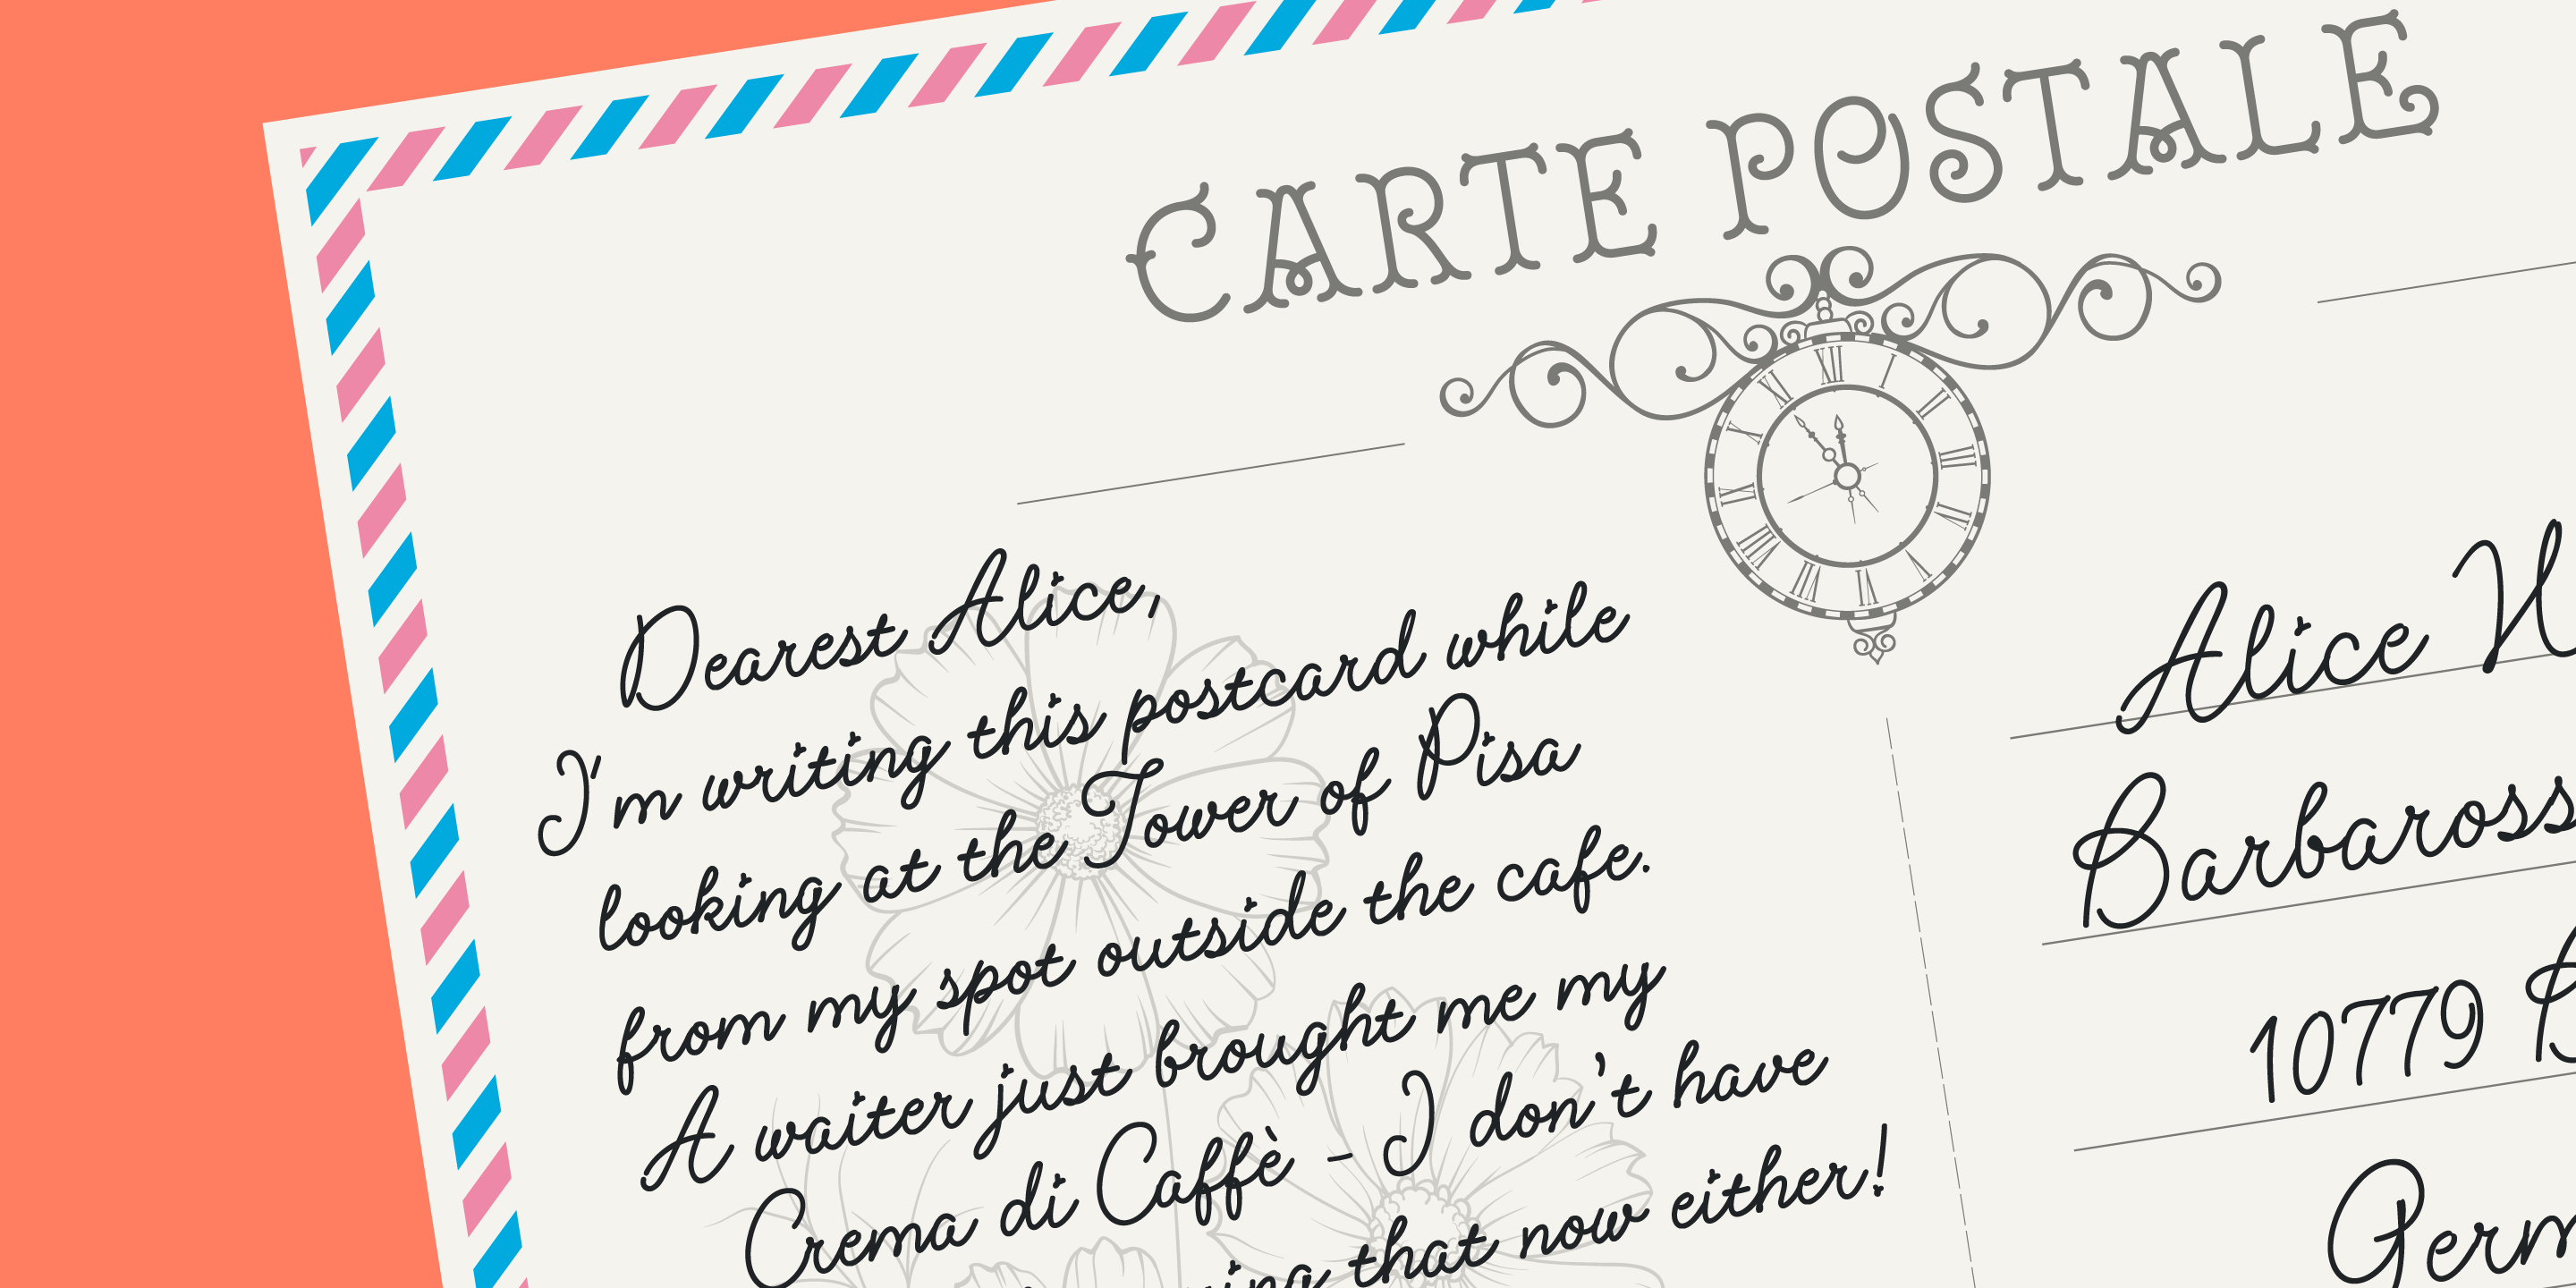 CARTE POSTALE
Dearest Alice,
I'm writing this postcard while
looking at the Tower of Pisa
from my spot outside the cafe.
A waiter just brought me my
Crema di Caffè - I don't have
that now either!
Alice
10779